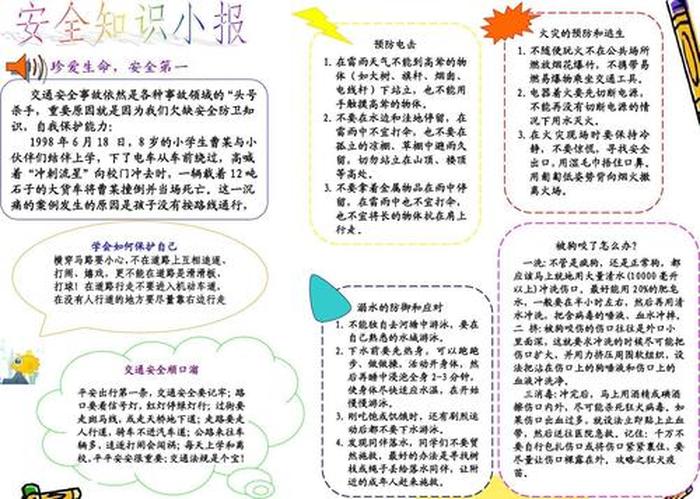 安全知识小报
珍爱生命,安全第一
交通安全事故依然是各种事故领域的“头号
杀手,重要原因就是因为我们欠缺安全防卫知
识,自我保护能力:
1998年6月18日,8岁的小学生曹某与小
伙伴们结伴上学,下了电车从车前绕过,高喊
着“冲刺流星”向校门冲去时,一辆载着12吨
石子的大货车将曹某撞倒并当场死亡。这一沉
痛的案例发生的原因是孩子没有按路线通行,
学会如何保护自己
横穿马路要小心,不在道路上互相追逐、
打闹、嬉戏,更不能在道路是滑滑板、
打球!在道路行走不要进入机动车道,
在没有人行道的地方要尽量靠右边行走
交通安全顺口溜
平安出行第一条,交通安全要记牢;路
口要看信号灯,红灯停绿灯行;过街要
走斑马线,或走天桥地下道;走路要走
人行道,骑车不进汽车道;公路来往车
辆多,追逐打闹会闯祸;每天上学和离
校,平平安安很重要;交通法规是个宝!
预防电击
1. 在雷雨天气不能到高耸的物
体(如大树、旗杆、烟囱、
电线杆)下站立,也不能用
手触摸高耸的物体。
2. 不要在水边和洼地停留,在
雷雨中不宜打伞,也不要在
孤立的凉棚、草棚中避雨久
留,切勿站立在山顶、楼顶
等高处。
3. 不要拿着金属物品在雨中停
留,在雷雨中也不宜打伞,
也不宜将长的物体扛在肩上
行走。
溺水的防御和应对
1. 不能独自去河塘中游泳,要在
自己熟悉的水域游泳。
2. 下水前要先热身,可以跑跑
步、做做操,活动开身体,然
后再睡中浸泡全身2-3分钟,
使身体尽快适应水温,在开始
慢慢游泳。
3. 刚吃饱或饥饿时,还有剧烈运
动后都不要下水游泳。
4. 发现同伴落水,同学们不要贸
然施救,最好的办法是寻找树
枝或绳子去给落水同伴,让附
近的成年人赶来施救。
火灾的预防和逃生
1. 不随便玩火不在公共场所
燃放烟花爆竹,不携带易
燃易爆物乘坐交通工具。
2. 电器着火要先切断电源,不
能再没有切断电源的情况
下用水灭火。
3. 在火灾现场时要保持冷
静,不要惊慌,寻找安全
出口,用湿毛巾捂住口鼻。
用匍匐低姿势背向烟火撤
离火场。
被狗咬了怎么办?
一洗:不管是疯狗,还是正常狗,都
应该马上就地用大量清水(10000毫升
以上)冲洗伤口,最好能用20%的肥皂
水,一般要在半小时左右,然后再用清
水冲洗,把含病毒的唾液、血水冲掉。
二挤:被狗咬伤的伤口往往是外口小
里面深,这就要求冲洗的时候尽可能把
伤口扩大,并用力挤压周围软组织,设
法把沾在伤口上的狗唾液和伤口上的
血液冲洗净。
三消毒:冲完后,马上用酒精或碘酒
擦伤口内外,尽可能杀死狂犬病毒。如
果伤口出血过多,就设法立即贴上止血
带,然后送往医院急救。记住:千万不
要自行包扎伤口或将伤口紧紧裹住,要
尽量让伤口裸露在外。攻略之狂犬疫
苗。